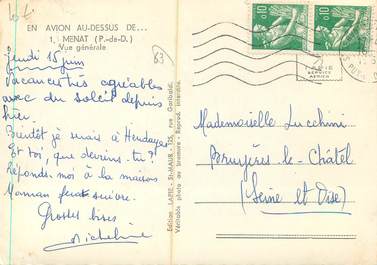 EN AVION AU-DESSUS DE...
1. MENAT (P.-de-D.)
Vue générale
63
Jeudi 15 juin
Vacances très agréables
avec du soleil depuis
hier.
Bientôt je serai à Hendaye
Et toi, que deviens-tu ?
Réponds-moi à la maison
Maman fera suivre.
Grosses bises
Micheline
Edition LAPIE - St-MAUR - 135, rue Garibaldi
Véritable photo au bromure - Reprod. interdite.
0,10
0,10
PARIS
SERVICE
AERIEN
Mademoiselle Lucchini
Bruyères-le-Châtel
(Seine et Oise)